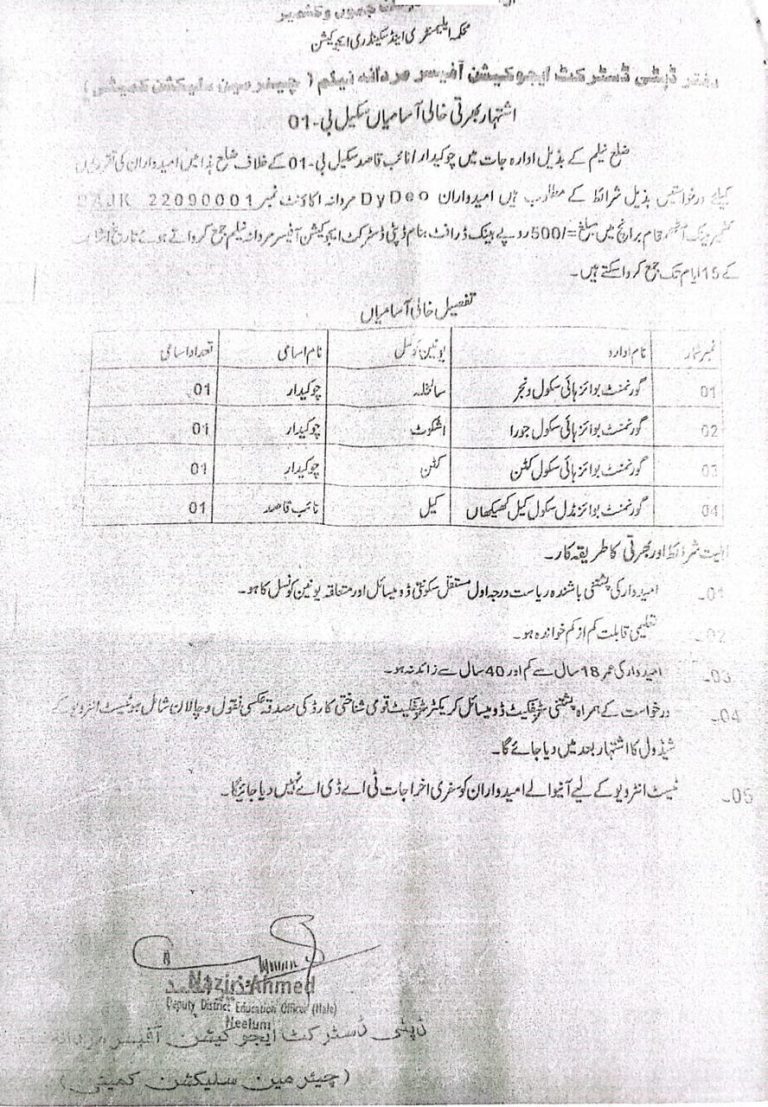 جموں وکشمیر
محکمہ ایلیمنٹری اینڈ سکینڈری ایجوکیشن
دفتر ڈپٹی ڈسٹرکٹ ایجوکیشن آفیسر مردانہ نیلم ( چیئرمین سلیکشن کمیٹی )
اشتہار بھرتی خالی آسامیاں سکیل بی-01
ضلع نیلم کے بذیل ادارہ جات میں چوکیدار / نائب قاصد سکیل بی-01 کے خلاف ضلع ہذا میں امیدواران کی تقرریوں
کیلئے درخواستیں بذیل شرائط کے مطلوب ہیں امیدواران DyDeo مردانہ اکاؤنٹ نمبر 22090001
بینک آٹھمقام برانچ میں مبلغ =/500 روپے بینک ڈرافٹ بنام ڈپٹی ڈسٹرکٹ ایجوکیشن آفیسر مردانہ نیلم جمع کرواتے ہوئے تاریخ اشاعت
کے 15 ایام تک جمع کروا سکتے ہیں۔
تفصیل خالی آسامیاں
نمبر شمار نام ادارہ یونین کونسل نام اسامی تعداد اسامی
01 گورنمنٹ بوائز ہائی سکول دنجر سالخلہ چوکیدار 01
02 گورنمنٹ بوائز ہائی سکول جورا اشکوٹ چوکیدار 01
03 گورنمنٹ بوائز ہائی سکول کٹن کٹن چوکیدار 01
04 گورنمنٹ بوائز مڈل سکول کیل کھیکھاں کیل نائب قاصد 01
اہلیت شرائط اور بھرتی کا طریقہ کار۔
01۔ امیدوار کی پشتنی باشندہ ریاست درجہ اول مستقل سکونتی ڈومیسائل اور متعلقہ یونین کونسل کا ہو۔
02۔ تعلیمی قابلت کم از کم خواندہ ہو۔
03۔ امیدوار کی عمر 18 سال سے کم اور 40 سال سے زائد نہ ہو۔
04۔ درخواست کے ہمراہ پشتنی سٹرٹیفکیٹ ڈومیسائل کریکٹر سٹرٹیفکیٹ قومی شناختی کارڈ کی مصدقہ عکسی نقول و چالان شامل ہو ٹیسٹ انٹرویو کے
شیڈول کا اشتہار بعد میں دیا جائے گا۔
05۔ ٹیسٹ انٹرویو کے لیے آنیوالے امیدواران کو سفری اخراجات ٹی اے ڈی اے نہیں دیا جائیگا۔
Nazir Ahmed
Deputy District Education Officer (Male)
Neelum
ڈپٹی ڈسٹرکٹ ایجوکیشن آفیسر مردانہ
(چیئرمین سلیکشن کمیٹی)